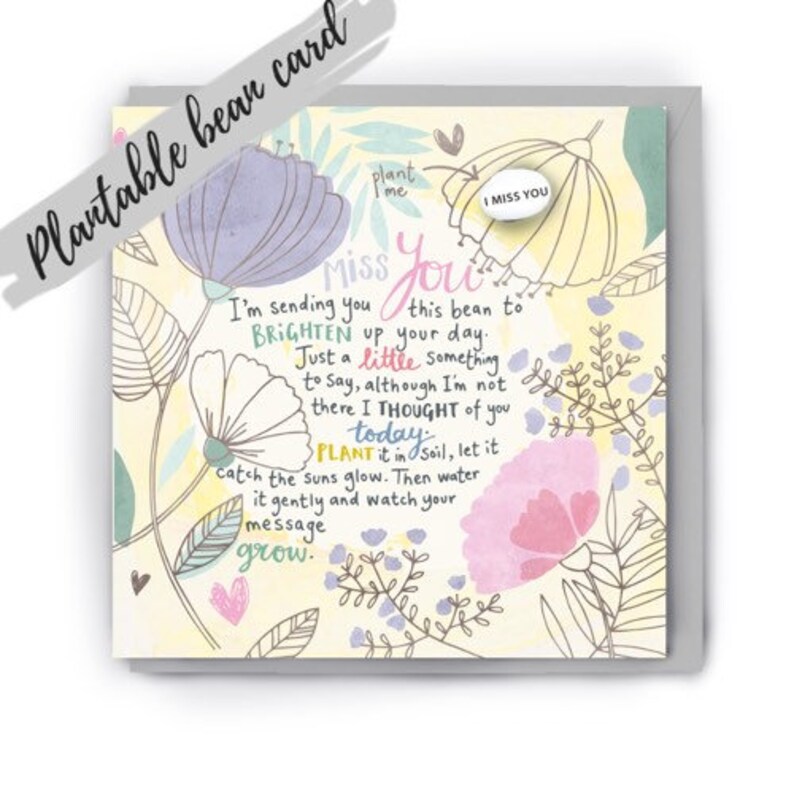 Plantable bean card
plant
me
I MISS YOU
Miss You
I'm sending you this bean to
BRIGHTEN up your day.
Just a little something
to say, although I'm not
there I THOUGHT of you
today.
PLANT it in soil, let it
catch the suns glow. Then water
it gently and watch your
message
grow.